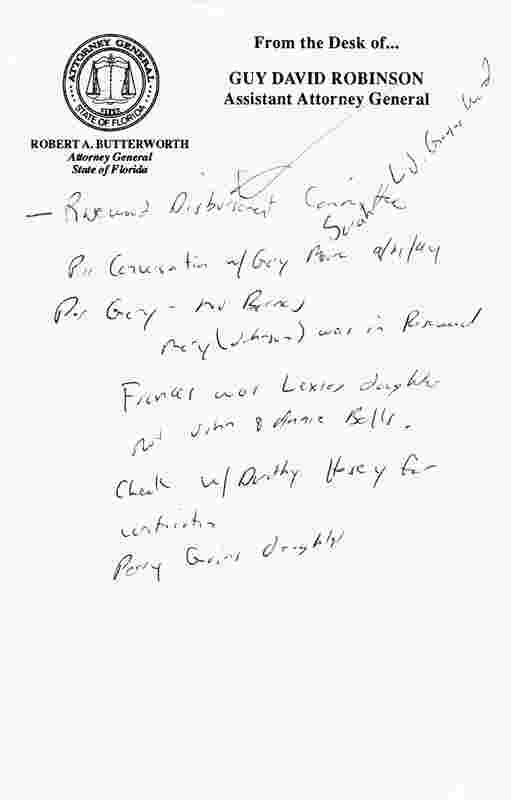 ATTORNEY GENERAL
STATE OF FLORIDA
ROBERT A. BUTTERWORTH
Attorney General
State of Florida
From the Desk of...
GUY DAVID ROBINSON
Assistant Attorney General
— Rosewood Disbursement Committee
Sarah
Per Conversation w/ Gary
Per Gary - 
Mary (Johnson) was in Rosewood
Frances was Lexies daughter
not John & Annie Bells.
Check w/ Dorothy Hosey for
verification
Perry Goins daughter